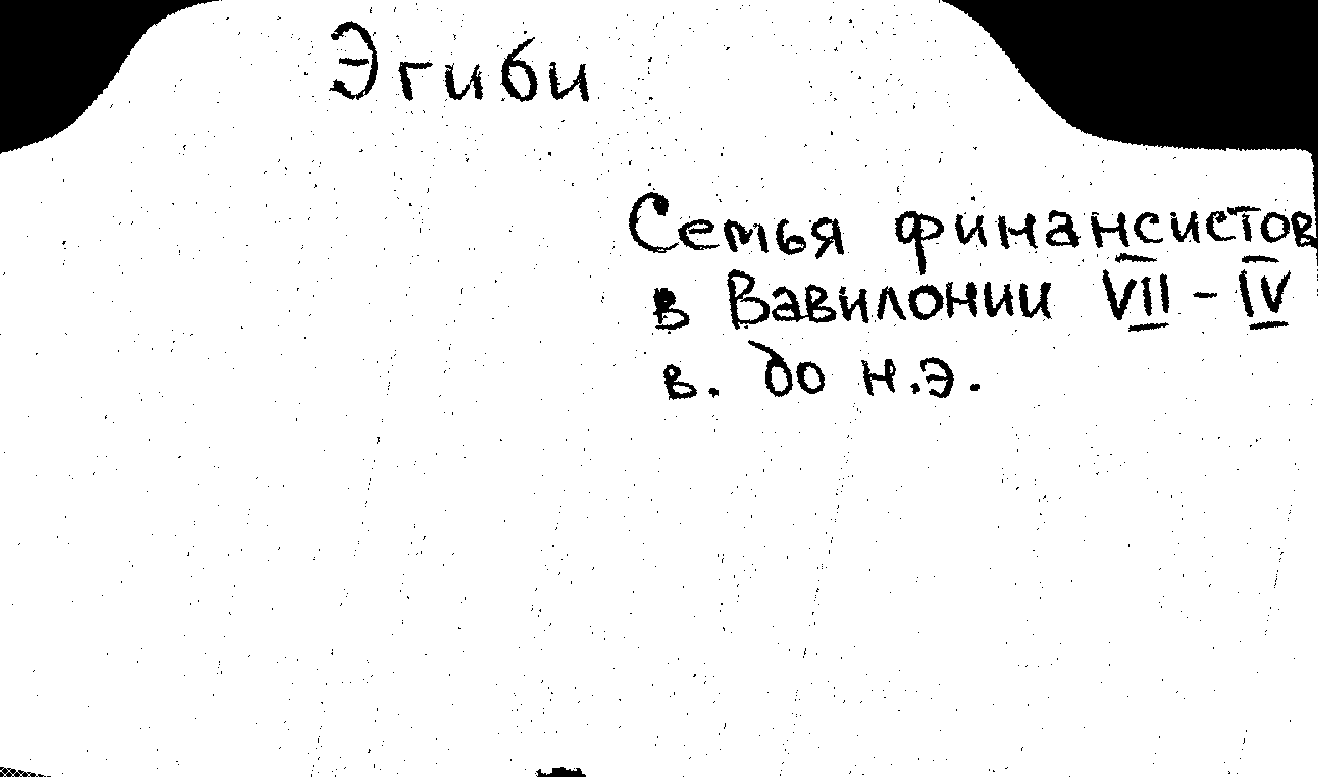 Эгиби
Семья финансистов
в Вавилонии VII - IV
в. до н.э.